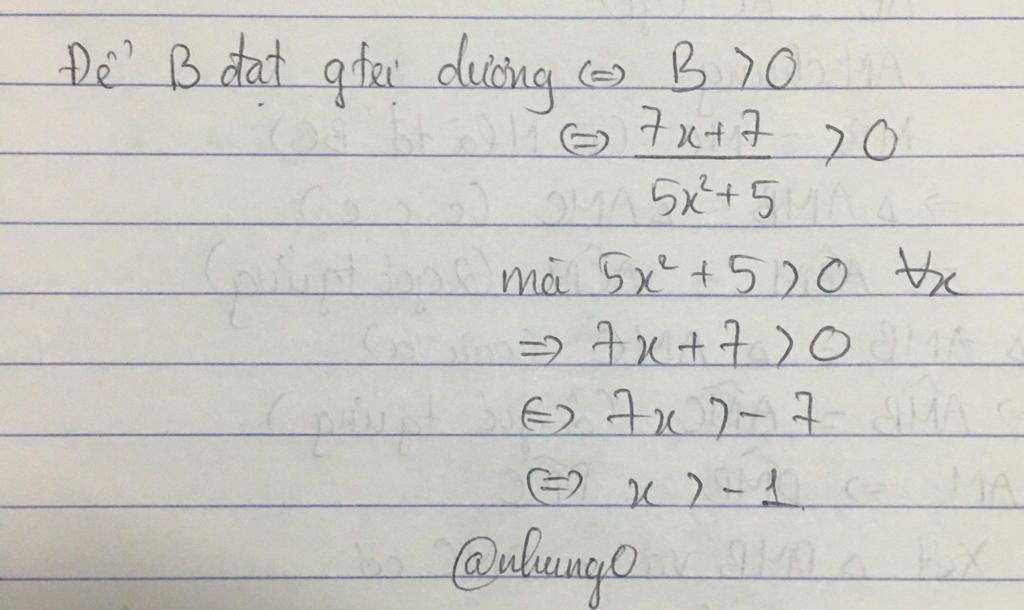 Để B đạt gtrị dương ⇔ B > 0
⇔ (7x + 7)/(5x² + 5) > 0
mà 5x² + 5 > 0 ∀x
⇒ 7x + 7 > 0
⇔ 7x > -7
⇔ x > -1
@nhung0